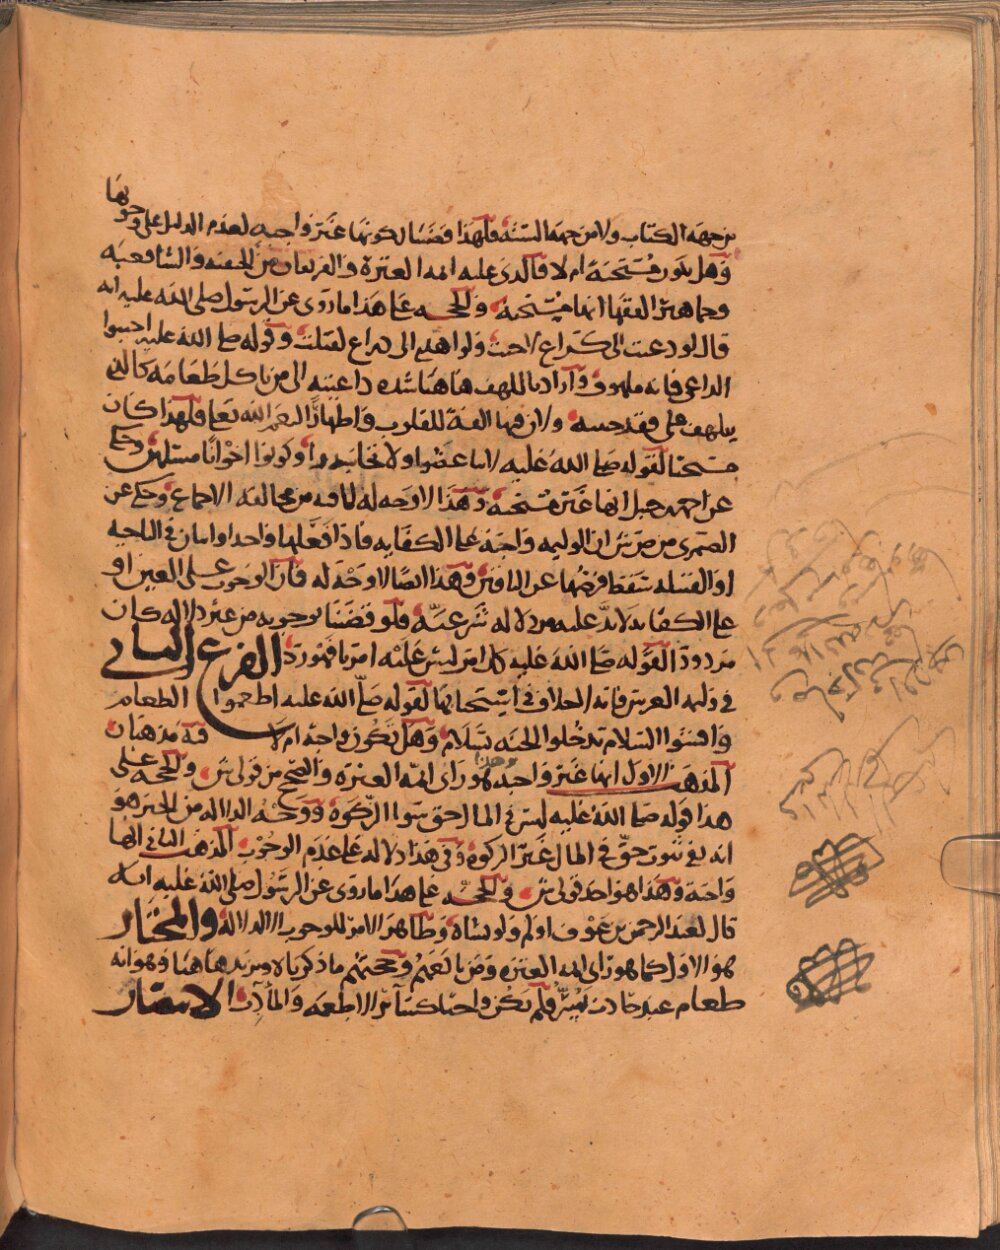 من جهة الكتاب ولا من جهة السنة فلهذا قضينا بكونها غير واجبه لعدم الدليل على وجوبها
وهل تكون مستحبة ام لا فالذى عليه ايمه العترة والفريقان من الحنفية والشافعيه
وجماهير الفقها انها مستحبه والحجه على هذا ما روى عن الرسول صلى الله عليه انه
قال لو دعيت الى كراع لاجبت ولو اهدى الى ذراع لقبلت وقوله صلى الله عليه اجيبوا
الداعى فانه ملهوف واراد باللهف هاهنا شده داعيته الى من ياكل طعامه كالذى
يتلهف على فقد حبيبه ولان فيها الفة للقلوب واظهارًا لنعم الله تعالى فلهذا كان
مستحبا لقوله صلى الله عليه لا تباغضوا ولا تحاسدوا وكونوا اخوانًا مسلمين وحكى
عن احمد بن حنبل انها غير مستحبه وهذا لا وجه له لما فيه من مخالفة الاجماع وحكى عن
الصيمرى من ان الوليمه واجبة على الكفايه فاذا فعلها واحد او اثنان فى الناحيه
او القبيله سقط فرضها عن الباقين وهذا ايضًا لا وجه له فان الوجوب على العين او
على الكفايه لا بد عليه من دلاله شرعيه فلو قضينا بوجوبه من غير دلاله كان
مردودًا لقوله صلى الله عليه كل امر ليس عليه امرنا فهو رد الفرع الثانى
فى وليمه العرس فانه لا خلاف فى استحبابها لقوله صلى الله عليه اطعموا الطعام
وافشوا السلام تدخلوا الجنه بسلام وهل تكون واجبه ام لا فيه مذهبان
المذهب الاول انها غير واجبه وهذا هو راى ايمه العترة والصحيح من قولى ش والحجه على
هذا قوله صلى الله عليه ليس فى المال حق سوا الزكوة ووجه الدلاله من الخبر هو
انه نفى ثبوت حق فى المال غير الزكوة وفى هذا دلاله على عدم الوجوب المذهب الثانى انها
واجبة وهذا هو احد قولى ش والحجه على هذا ما روى عن الرسول صلى الله عليه انه
قال لعبد الرحمن بن عوف اولم ولو بشاة وظاهر الامر للوجوب الا لدلاله والمختار
هو الاول كما هو راى ايمه العترة ومن تابعهم وحجتهم ما ذكرناه ونزيد هاهنا وهو انه
طعام عند حادث سرور فلم يكن واجبا كسائر الاطعمه والمادب الانتصار